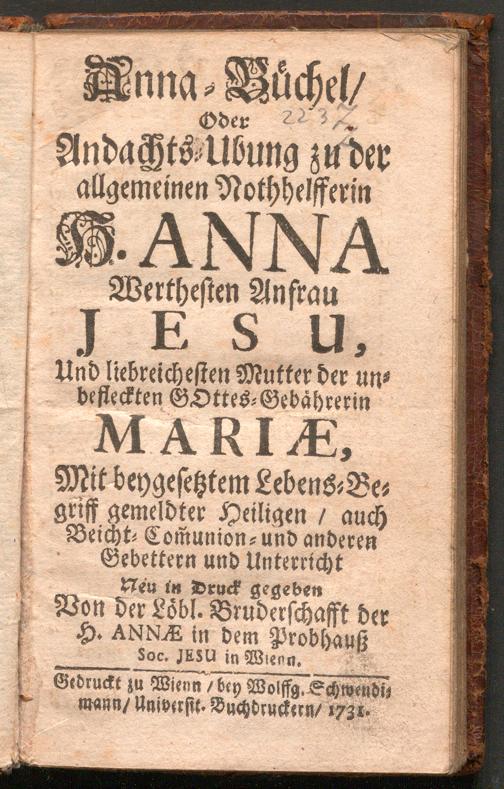 Anna-Büchel/
Oder
2237
Andachts-Ubung zu der
allgemeinen Nothhelfferin
H. ANNA
Werthesten Anfrau
JESU,
Und liebreichesten Mutter der un-
befleckten GOttes-Gebährerin
MARIÆ,
Mit beygesetztem Lebens-Be-
griff gemeldter Heiligen / auch
Beicht- Com̃union- und anderen
Gebettern und Unterricht
Neu in Druck gegeben
Von der Löbl. Bruderschafft der
H. ANNÆ in dem Probhauß
Soc. JESU in Wienn.
Gedruckt zu Wienn / bey Wolffg. Schwendi-
mann/ Universit. Buchdruckern/ 1731.